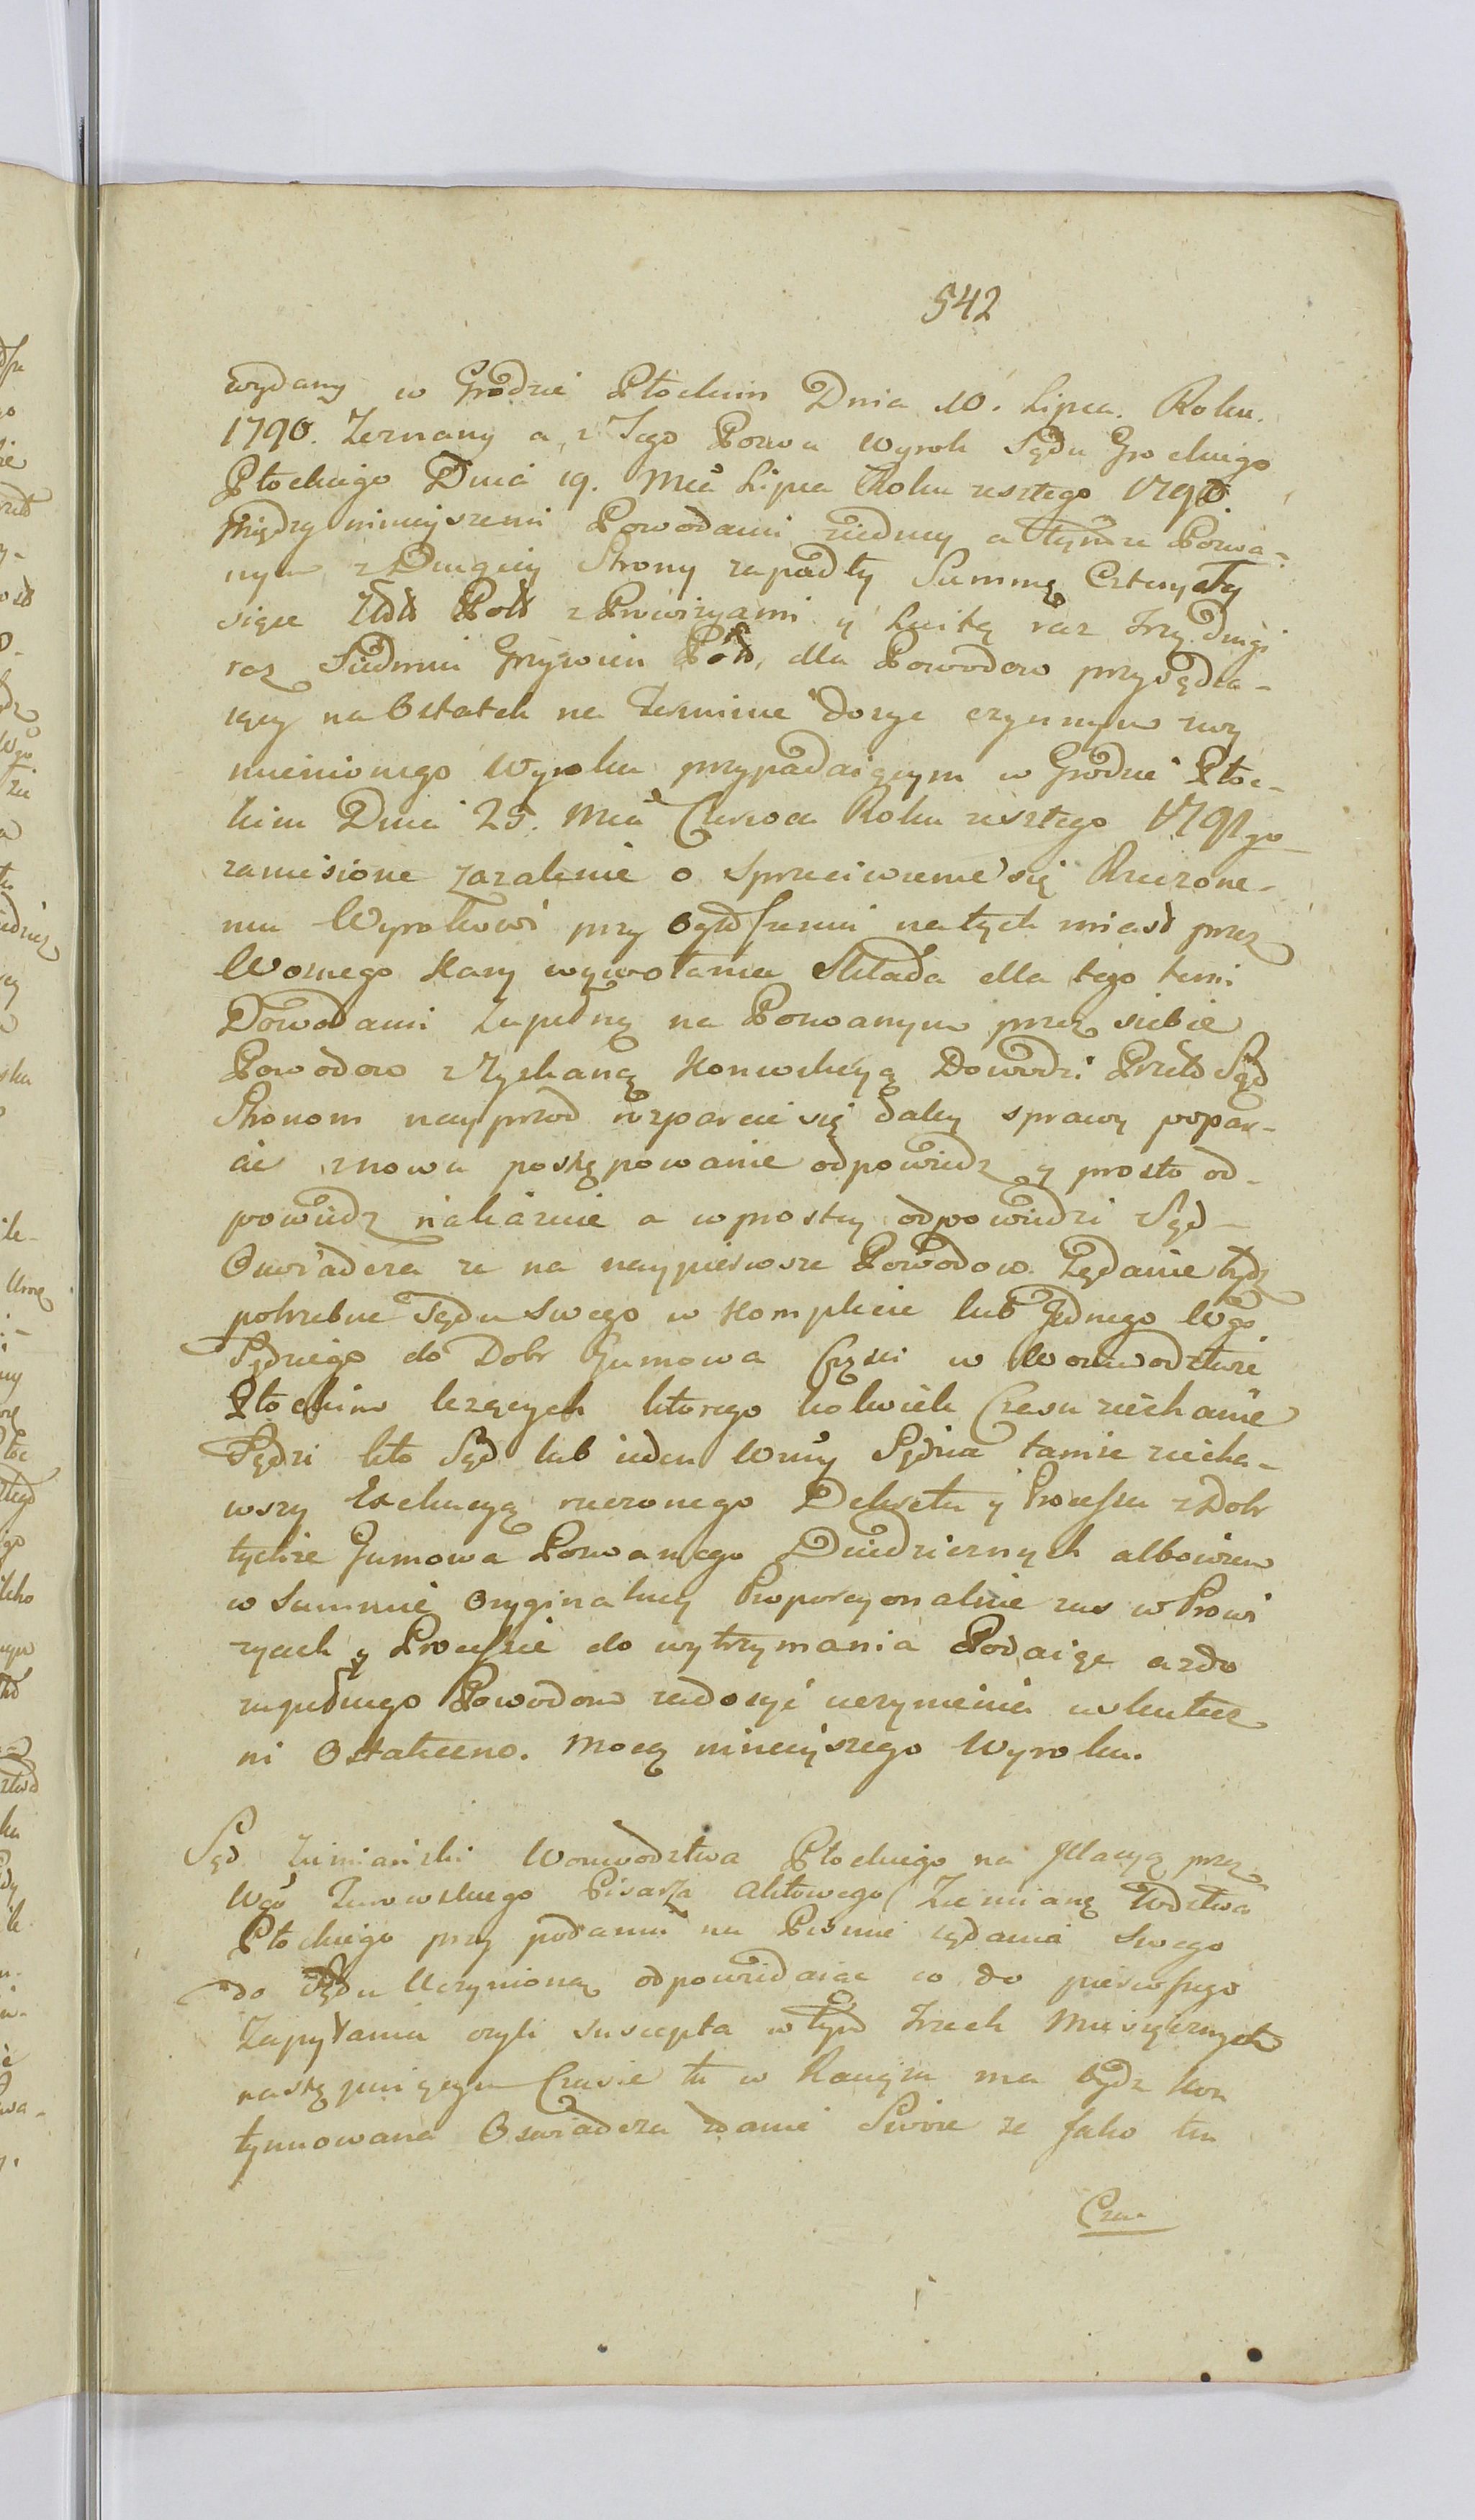 542
wydany w Grodzie Płockim Dnia 10. Lipca. Roku.
1790. Zeznany a z Tego Pozwu Wyrok Sądu Grockiego
Płockiego Dnia 19. Mca Lipca Roku zeszłego 1790.
między ninieyszemi Powodami ziedney a tymze Pozwa-
nym z Drugiey Strony zapadły Summę Cztery Ty
siące Złt Pol z Prowizyami y Luitą raz Trzy drugi
raz Siedmiu Grzywien Pol, dla Powodow przysądza-
iący na Ostatek na Terminie dosyc czynnym zwy
mienionego Wyroku przypadaiącym w Grodzie Płoc-
kim Dnia 25. Mca Czerwca Roku zeszłego 1791go
zaniesione zazalenie o Sprzeciwienie się Rzeczone-
mu Wyrokowi przy natych miast przez
Woznego Kary wywołania Składa dla tego temi
Dowodami Zupełną na Pozwanym przez siebie
Powodow zyskaną Konwikcyą Dowodzi Przeto Sąd
Stronom nayprzod rozparcie się daley sprawy popar-
cie znowu postępowanie odpowiedz y prosto od-
powiedz nakazuie a wprostey odpowiedzi Sąd
Oswiadcza ze na naypierwsze Powodow Ządanie bydz
potrzebne Sądu Swego w Komplecie lub Jednego Wgo
Sędziego do Dobr Gumowa Częsci w Woiewodztwie
Płockim lezących ktorego kolwiek Czasu ziechanie
Sądzi kto Sąd lub ieden Wmy Sędzia tamze ziecha-
wszy Exekucyą rzeczonego Dekretu y Processu z Dobr
tychze Gumowa Pozwanego Dziedzicznych albowiem
w Summie Oryginalney Proporcyonalnie zas w Prowi
zyach y Processie do wytrzymania Podaiąc azdo
zupełnego Powodow zadosyć uczynienia uskutecz
ni Ostateczno. Mocą ninieyszego Wyroku.
Sąd Ziemianski Woiewodztwa Płockiego na przez
Wgo Zurowskiego Pisarza Aktowego Ziemianę Wdztwa
Płockiego przy podaniu na Pismie ządania Swego
do Sądu Uczynioną odpowiadaiac co do pierwszego
Zapytania czyli Suscepta w tym Trzech Miesięcznych
następuiącym Czasie tu w ma bydz kon
tynuowana Oswiadcza zdanie Swoie ze Jako ten
Czas